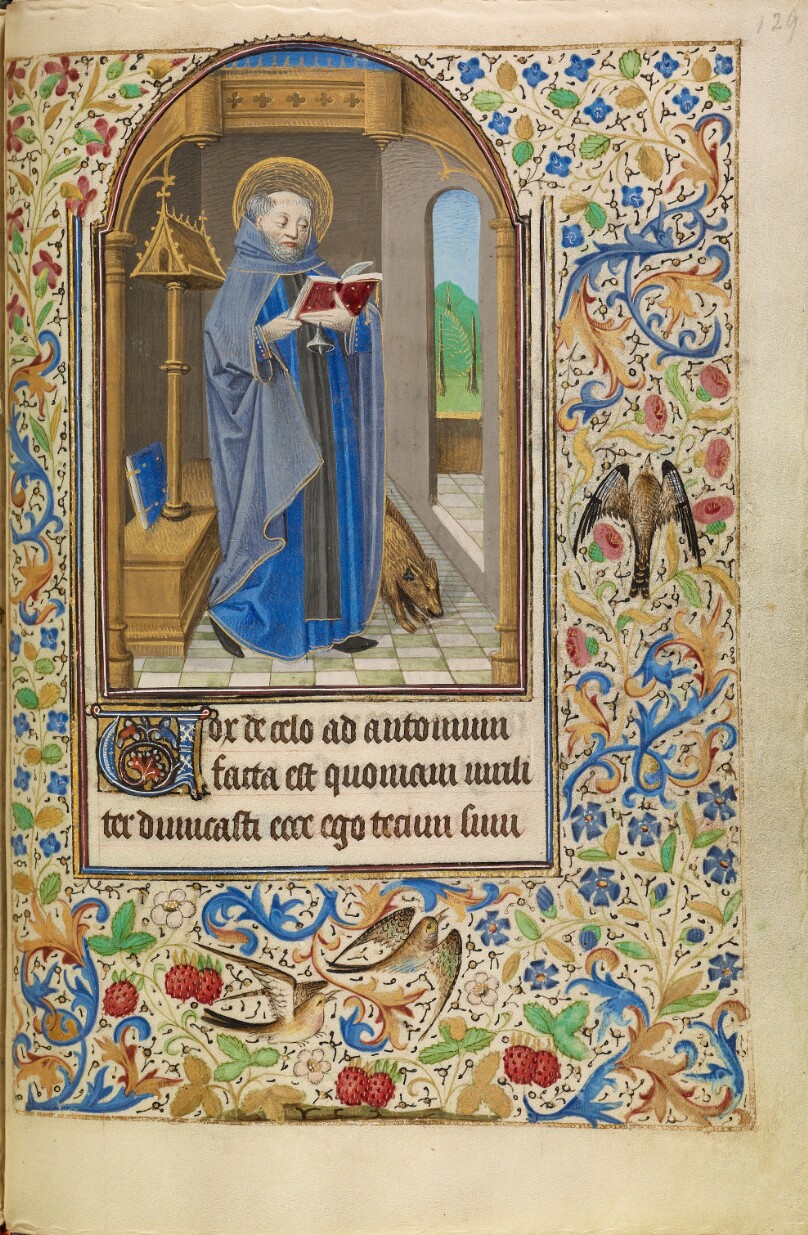 129
Vox de celo ad antonium
facta est quoniam uirili
ter dimicasti ecce ego tecum sum